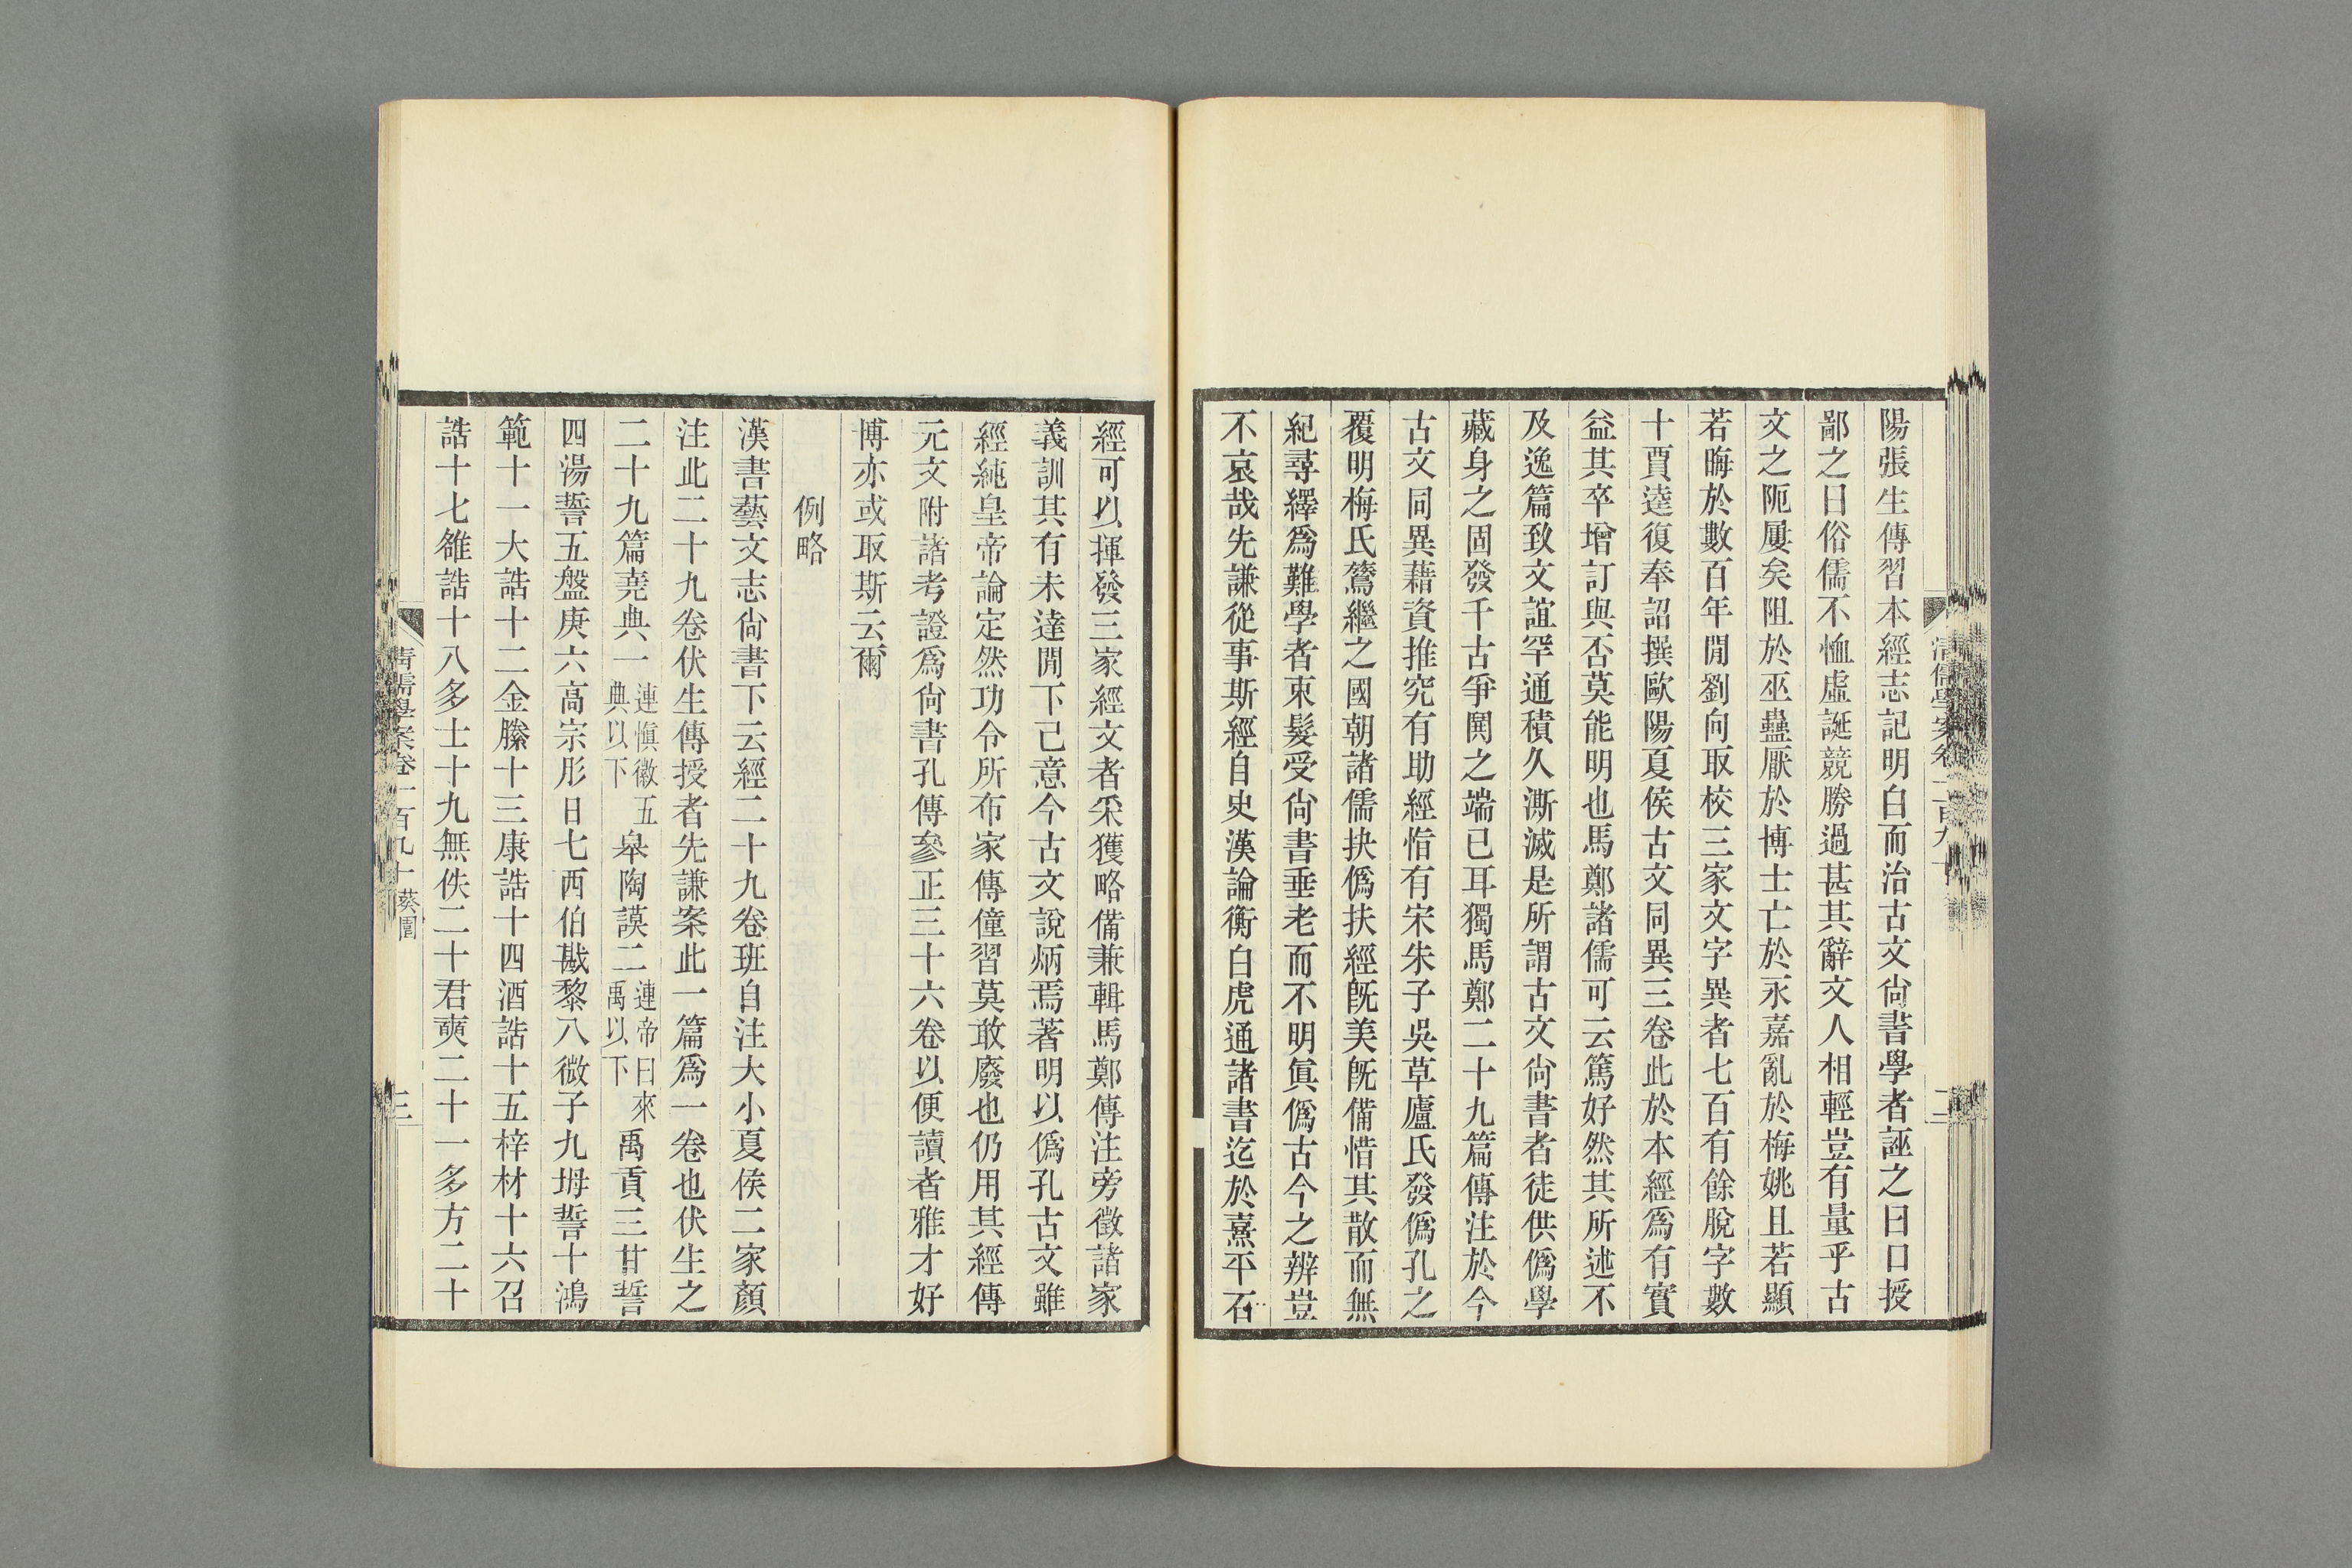 陽張生傳習本經志記明白而治古文尙書學者誣之曰口授
鄙之曰俗儒不恤虛誕競勝過甚其辭文人相輕豈有量乎古
文之阨屢矣阻於巫蠱厭於博士亡於永嘉亂於梅姚且若顯
若晦於數百年閒劉向取校三家文字異者七百有餘脫字數
十賈逵復奉詔撰歐陽夏侯古文同異三卷此於本經爲有實
益其卒增訂與否莫能明也馬鄭諸儒可云篤好然其所述不
及逸篇致文誼罕通積久澌滅是所謂古文尙書者徒供僞學
藏身之固發千古爭鬨之端已耳獨馬鄭二十九篇傳注於今
古文同異藉資推究有助經恉有宋朱子吳草廬氏發僞孔之
覆明梅氏鷟繼之國朝諸儒抉僞扶經旣美旣備惜其散而無
紀尋繹爲難學者束髮受尙書垂老而不明眞僞古今之辨豈
不哀哉先謙從事斯經自史漢論衡白虎通諸書迄於熹平石
清儒學案卷一百九十
二
經可以揮發三家經文者采獲略備兼輯馬鄭傳注旁徵諸家
義訓其有未達閒下己意今古文說炳焉著明以僞孔古文雖
經純皇帝論定然功令所布家傳僮習莫敢廢也仍用其經傳
元文附諸考證爲尙書孔傳參正三十六卷以便讀者雅才好
博亦或取斯云爾
例略
漢書藝文志尙書下云經二十九卷班自注大小夏侯二家顏
注此二十九卷伏生傳授者先謙案此一篇爲一卷也伏生之
二十九篇堯典一連愼徽五典以下皋陶謨二連帝曰來禹以下禹貢三甘誓
四湯誓五盤庚六高宗肜日七西伯戡黎八微子九坶誓十鴻
範十一大誥十二金縢十三康誥十四酒誥十五梓材十六召
誥十七雒誥十八多士十九無佚二十君奭二十一多方二十
清儒學案卷一百九十葵園
三